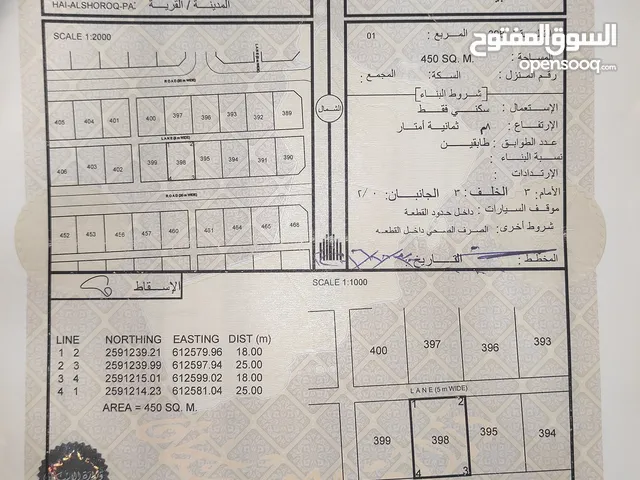 HAI-ALSHOROQ-PA
المدينة / القرية :
السوق المفتوح
opensooq.com
SCALE 1:2000
ROAD (20 m WIDE)
405 404 401 400 397 396 393 392 389
LANE (5 m WIDE)
406 403 402 399 398 395 394 391 390
1 2 3 4
ROAD (20 m WIDE)
452 453 456 457 460 461 464 465 468
الشمال
المربع : 01
المساحة : 450 SQ. M.
رقم المنزل : السكة: المجمع :
شروط البناء
الإستعمال : سكني فقط
الإرتفاع : ٨م ثمانية أمتار
عدد الطوابق : طابقين
نسبة البناء :
الإرتدادات :
الأمام: ٣ الخلف: ٣ الجانبان: ٢/٠
موقف السيارات : داخل حدود القطعة
شروط أخرى: الصرف الصحي داخل القطعه
المخطط : التاريخ :
الإسقاط :
SCALE 1:1000
LINE NORTHING EASTING DIST (m)
1 2 2591239.21 612579.96 18.00
2 3 2591239.99 612597.94 25.00
3 4 2591215.01 612599.02 18.00
4 1 2591214.23 612581.04 25.00
AREA = 450 SQ. M.
400 397 396 393
LANE (5 m WIDE)
1 2
399 398 395 394
4 3